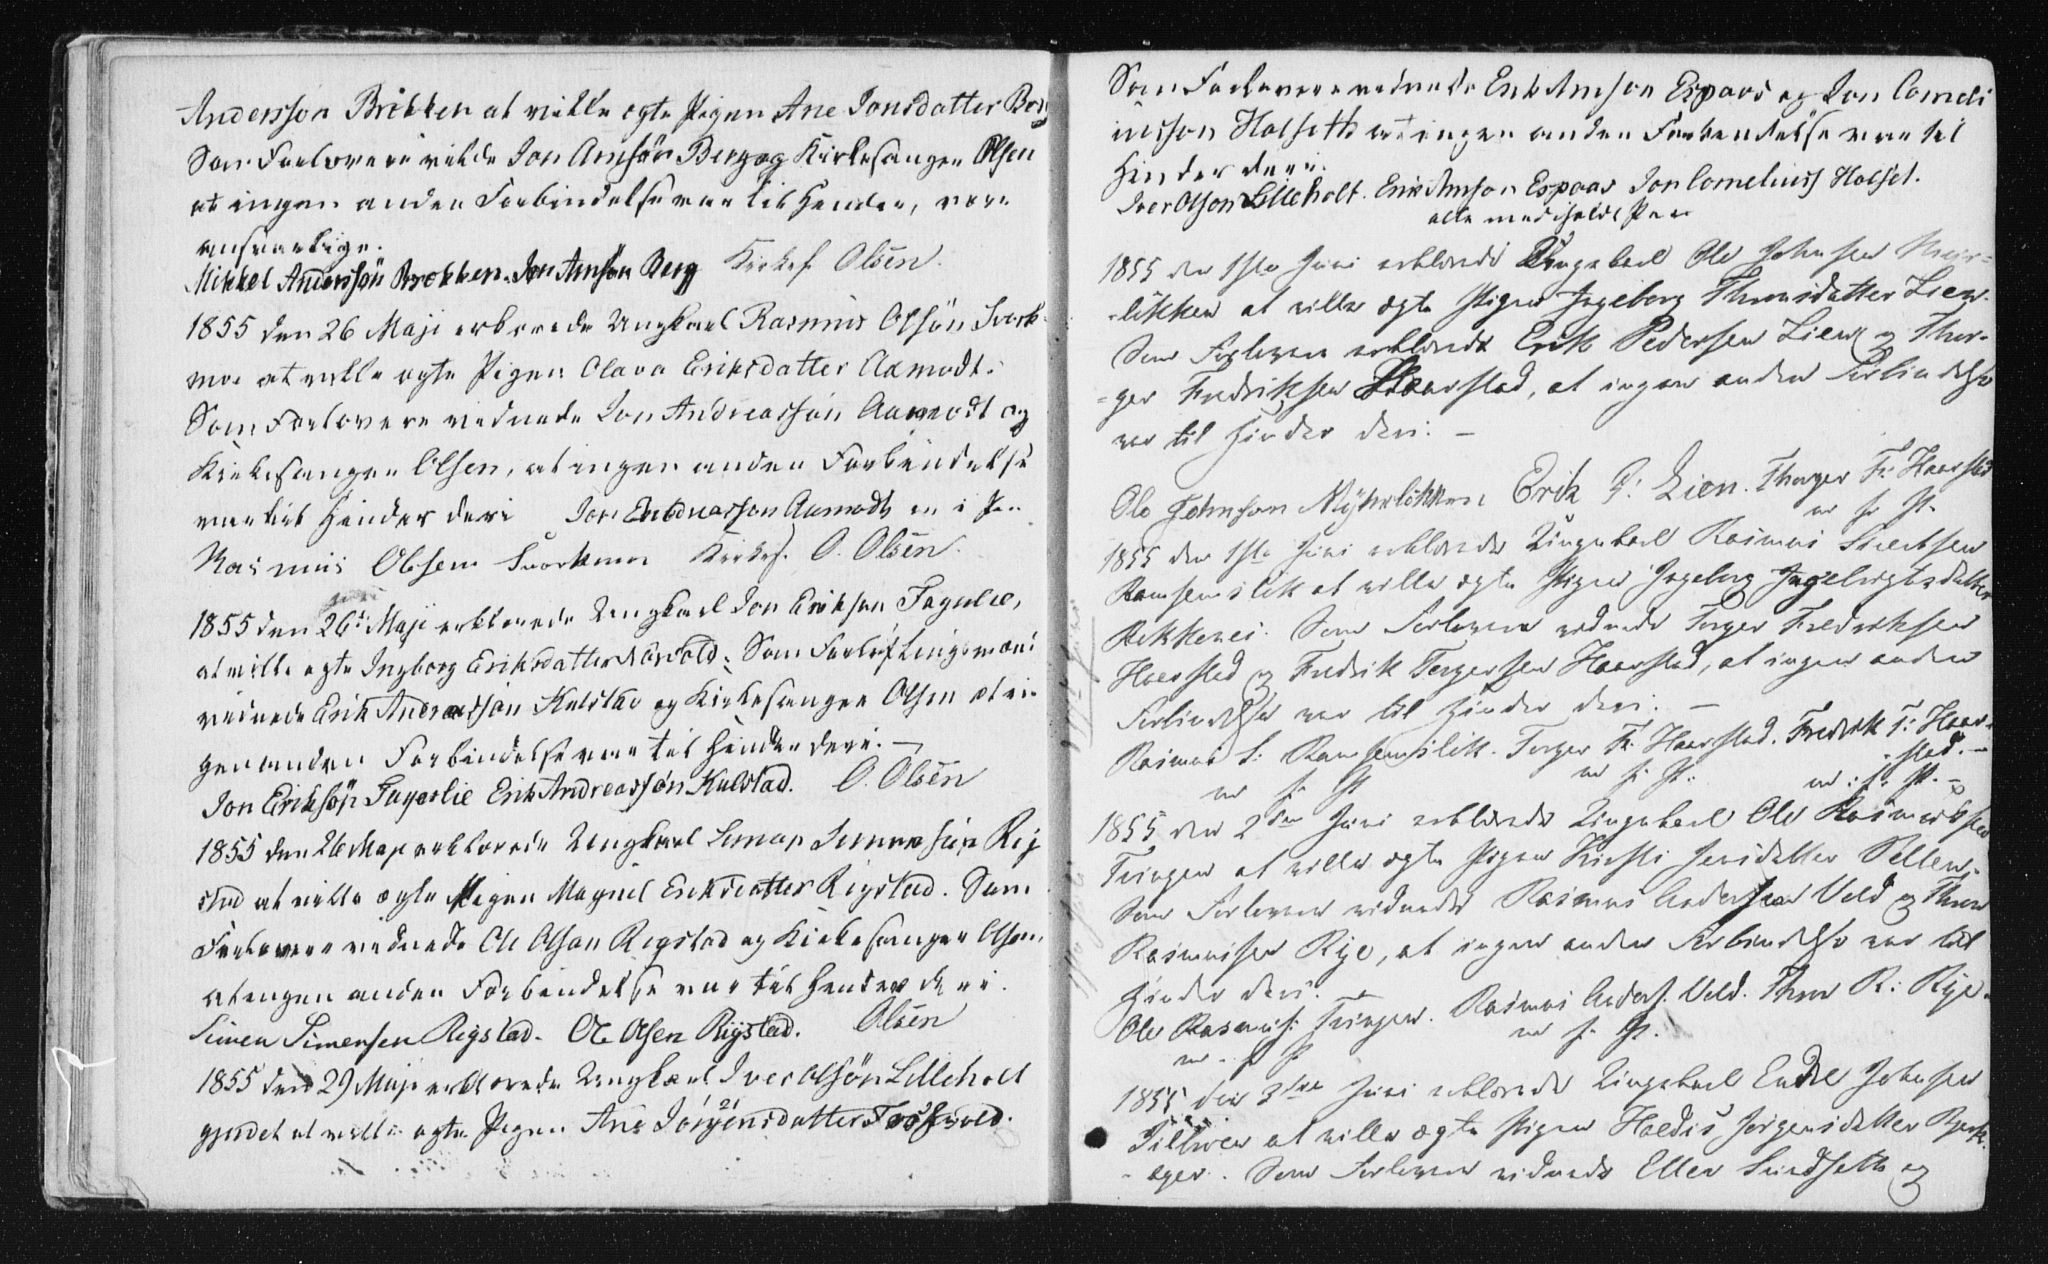 Andersson Brökken at vilde ægte Pigen Ane Jonsdatter Berg
Som Forlovere vilde Jon Arnsön Berg og Kirkesanger Olsen
at ingen anden Forbindelse var til Hinder, være
ansvarlige.
Mikkel Anderssön Brökken. Jon Arnsön Berg Kirkes. Olsen.
1855 den 26 Maji erklærede Ungkarl Rasmus Olsön Svork-
moe at ville ægte Pigen Olava Eriksdatter Aamodt.
Som Forlovere vidnede Jon Andreassön Aamodt og
Kirkesanger Olsen, at ingen anden Forbindelse
var til Hinder deri Jon Andreasson Aamodt m i Pen
Rasmus Olsen Svorkmoe Kirkes. O. Olsen.
1855 den 26 Maji erklærede Ungkarl Jon Eriksen Fagerlie,
at ville ægte Ingborg Eriksdatter
vidnede Erik Andreassön Kulstad og Kirkesanger Olsen at in-
gen anden Forbindelse var til Hinder deri. —
Jon Eriksön Fagerlie Erik Andreassön Kulstad. O. Olsen
1855 den 26 Maji erklærede Ungkarl Simen Simensen Rig
stad at ville ægte Pigen Magnil Eriksdatter Rigstad. Som
Forlovere vidnede Ole Olsen Rigstad og Kirkesanger Olsen,
at ingen anden Forbindelse var til Hinder deri.
Simen Simensen Rigstad. Ole Olsen Rigstad. Olsen
1855 den 29 Maji erklærede Ungkarl Iver Olsön Lilleholt
gjordet at ville ægte Pigen Ane Jörgensdatter
Som Forlovere vidnede Erik Arnson Espaas og Jon Corneli
iusson Holseth at ingen anden Forbindelse var til
Hinder deri.
Iver Olson Lilleholt. Erik Arnson Espaas Jon Corneliuss Holset.
alle med iholdt Pen
1855 den 1ste Juni erklærede Ungkarl Ole Johnsen Myhr-
-lökken at ville ægte Pigen Ingeborg Thoresdatter Lien.
Som Forlovere erklærede Erik Pedersen Lien og Thor-
-ger Fredriksen Haarstad, at ingen anden Forbindelse
var til Hinder deri. —
Ole Johnson Myhrlökken Erik P: Lien. Thorger Fr: Haarstad
m f P.
1855 den 1ste Juni erklærede Ungkarl Rasmus Sivertsen
Ramsemslett at ville ægte Pigen Ingeborg Ingebrigtsdatter
Som Forlovere vidnede Torger Fredriksen
Haarstad og Fredrik Torgersen Haarstad, at ingen anden
Forbindelse var til Hinder deri. —
Rasmus S: Ramsemslett. Torger Fr. Haarstad. Fredrik T: Haar-
-stad. —
m f. P m f. P. m. f. P. —
1855 den 2den Juni erklærede Ungkarl Ole Rasmussen
Tringen at ville ægte Pigen Kirsti Jensdatter
Som Forlovere vidnede Rasmus Andersen Veld og Thore
Rasmussen Rye, at ingen anden Forbindelse var til
Hinder deri.
Ole Rasmus: Tringen. Rasmus Anders. Veld. Thore R: Rye.
m. f P m f. P.
1855 den 3die Juni erklærede Ungkarl Endre Johnsen
at ville ægte Pigen Haldis Jörgensdatter Bjerk-
-ager. Som Forlovere vidnede Eller Sundseth og